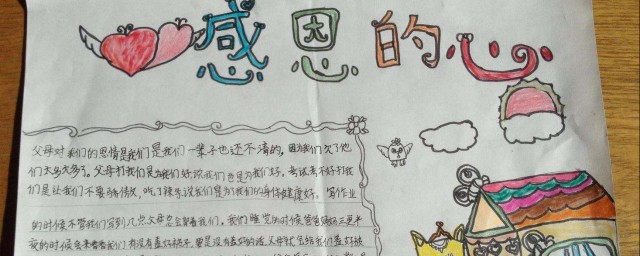 感恩的心
父母对我们的恩情是我们是我们一辈子也还不清的,因为我们欠了他
们太多太多了。父母打我们是为我们好,说我们也是为我们好。考试考不好打我
们是让我们不要骄傲,吃了辣条说我们是为了我们的身体健康好,写作业
的时候不管我们写到几点父母总会陪着我们。我们睡觉的时候爸爸妈妈三更半
夜的时候会来看看我们有没有盖好被子,要是没有盖好的话,父母就会给我们盖好被